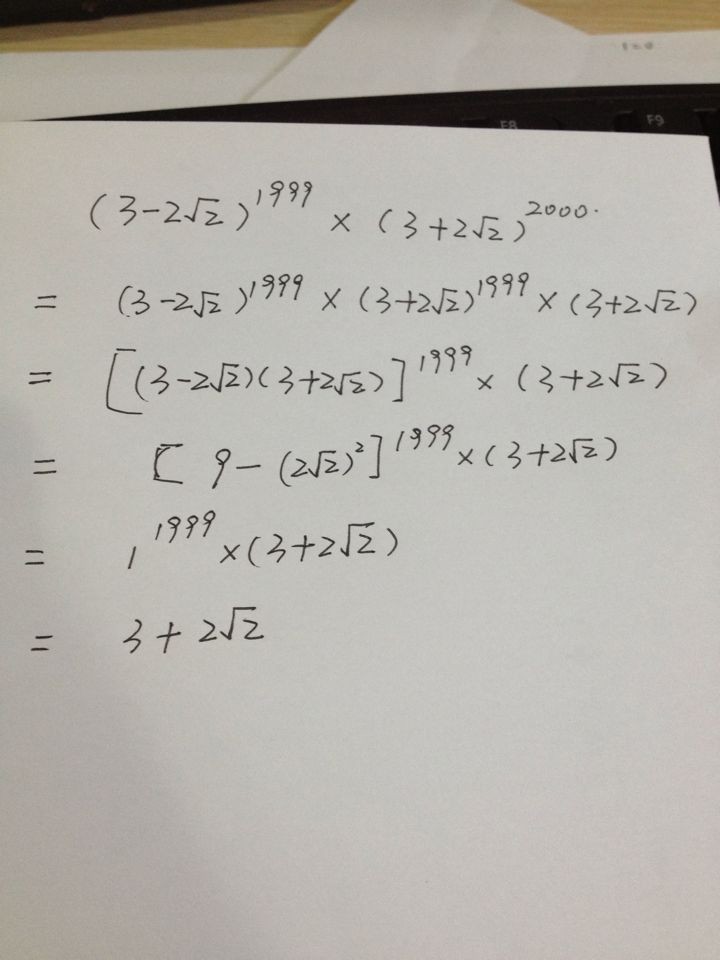 1=0
F8 F9
(3-2√2)^1999 × (3+2√2)^2000.
= (3-2√2)^1999 × (3+2√2)^1999 × (3+2√2)
= [(3-2√2)(3+2√2)]^1999 × (3+2√2)
= [9-(2√2)^2]^1999 × (3+2√2)
= 1^1999 × (3+2√2)
= 3+2√2